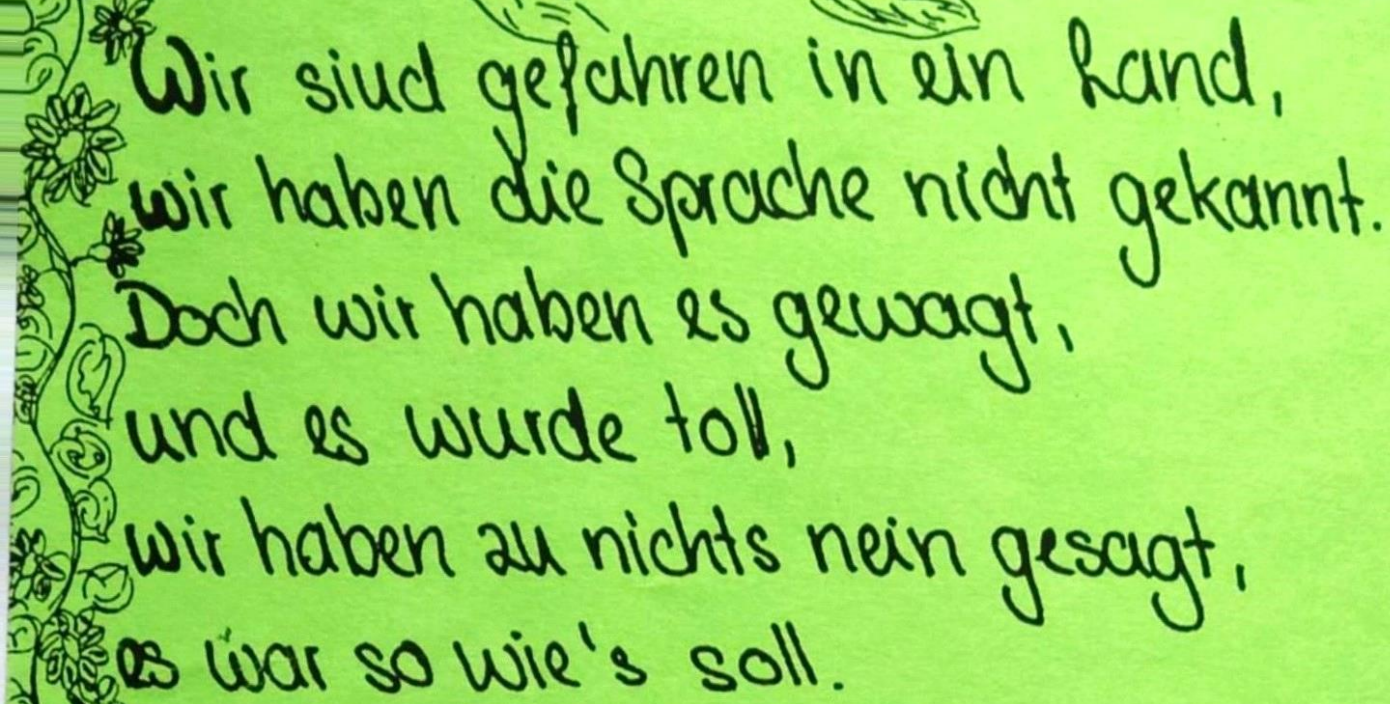 Wir sind gefahren in ein Land,
wir haben die Sprache nicht gekannt.
Doch wir haben es gewagt,
und es wurde toll,
wir haben zu nichts nein gesagt,
es war so wie's soll.